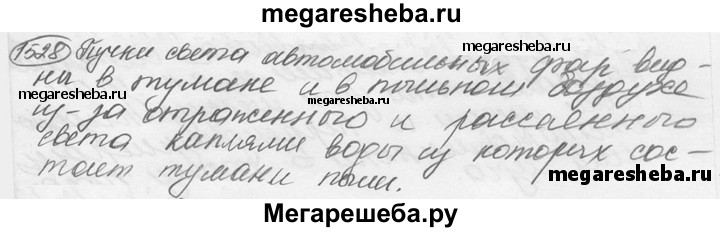 megaresheba.ru
1528 Пучки света автомобильных фар вид-
megaresheba.ru
ны в тумане и в пыльном воздухе
megaresheba.ru
из-за отраженного и рассеенного
света каплями воды из которых сос-
тоит туман и пыли.
megaresheba.ru
Мегарешеба.ру